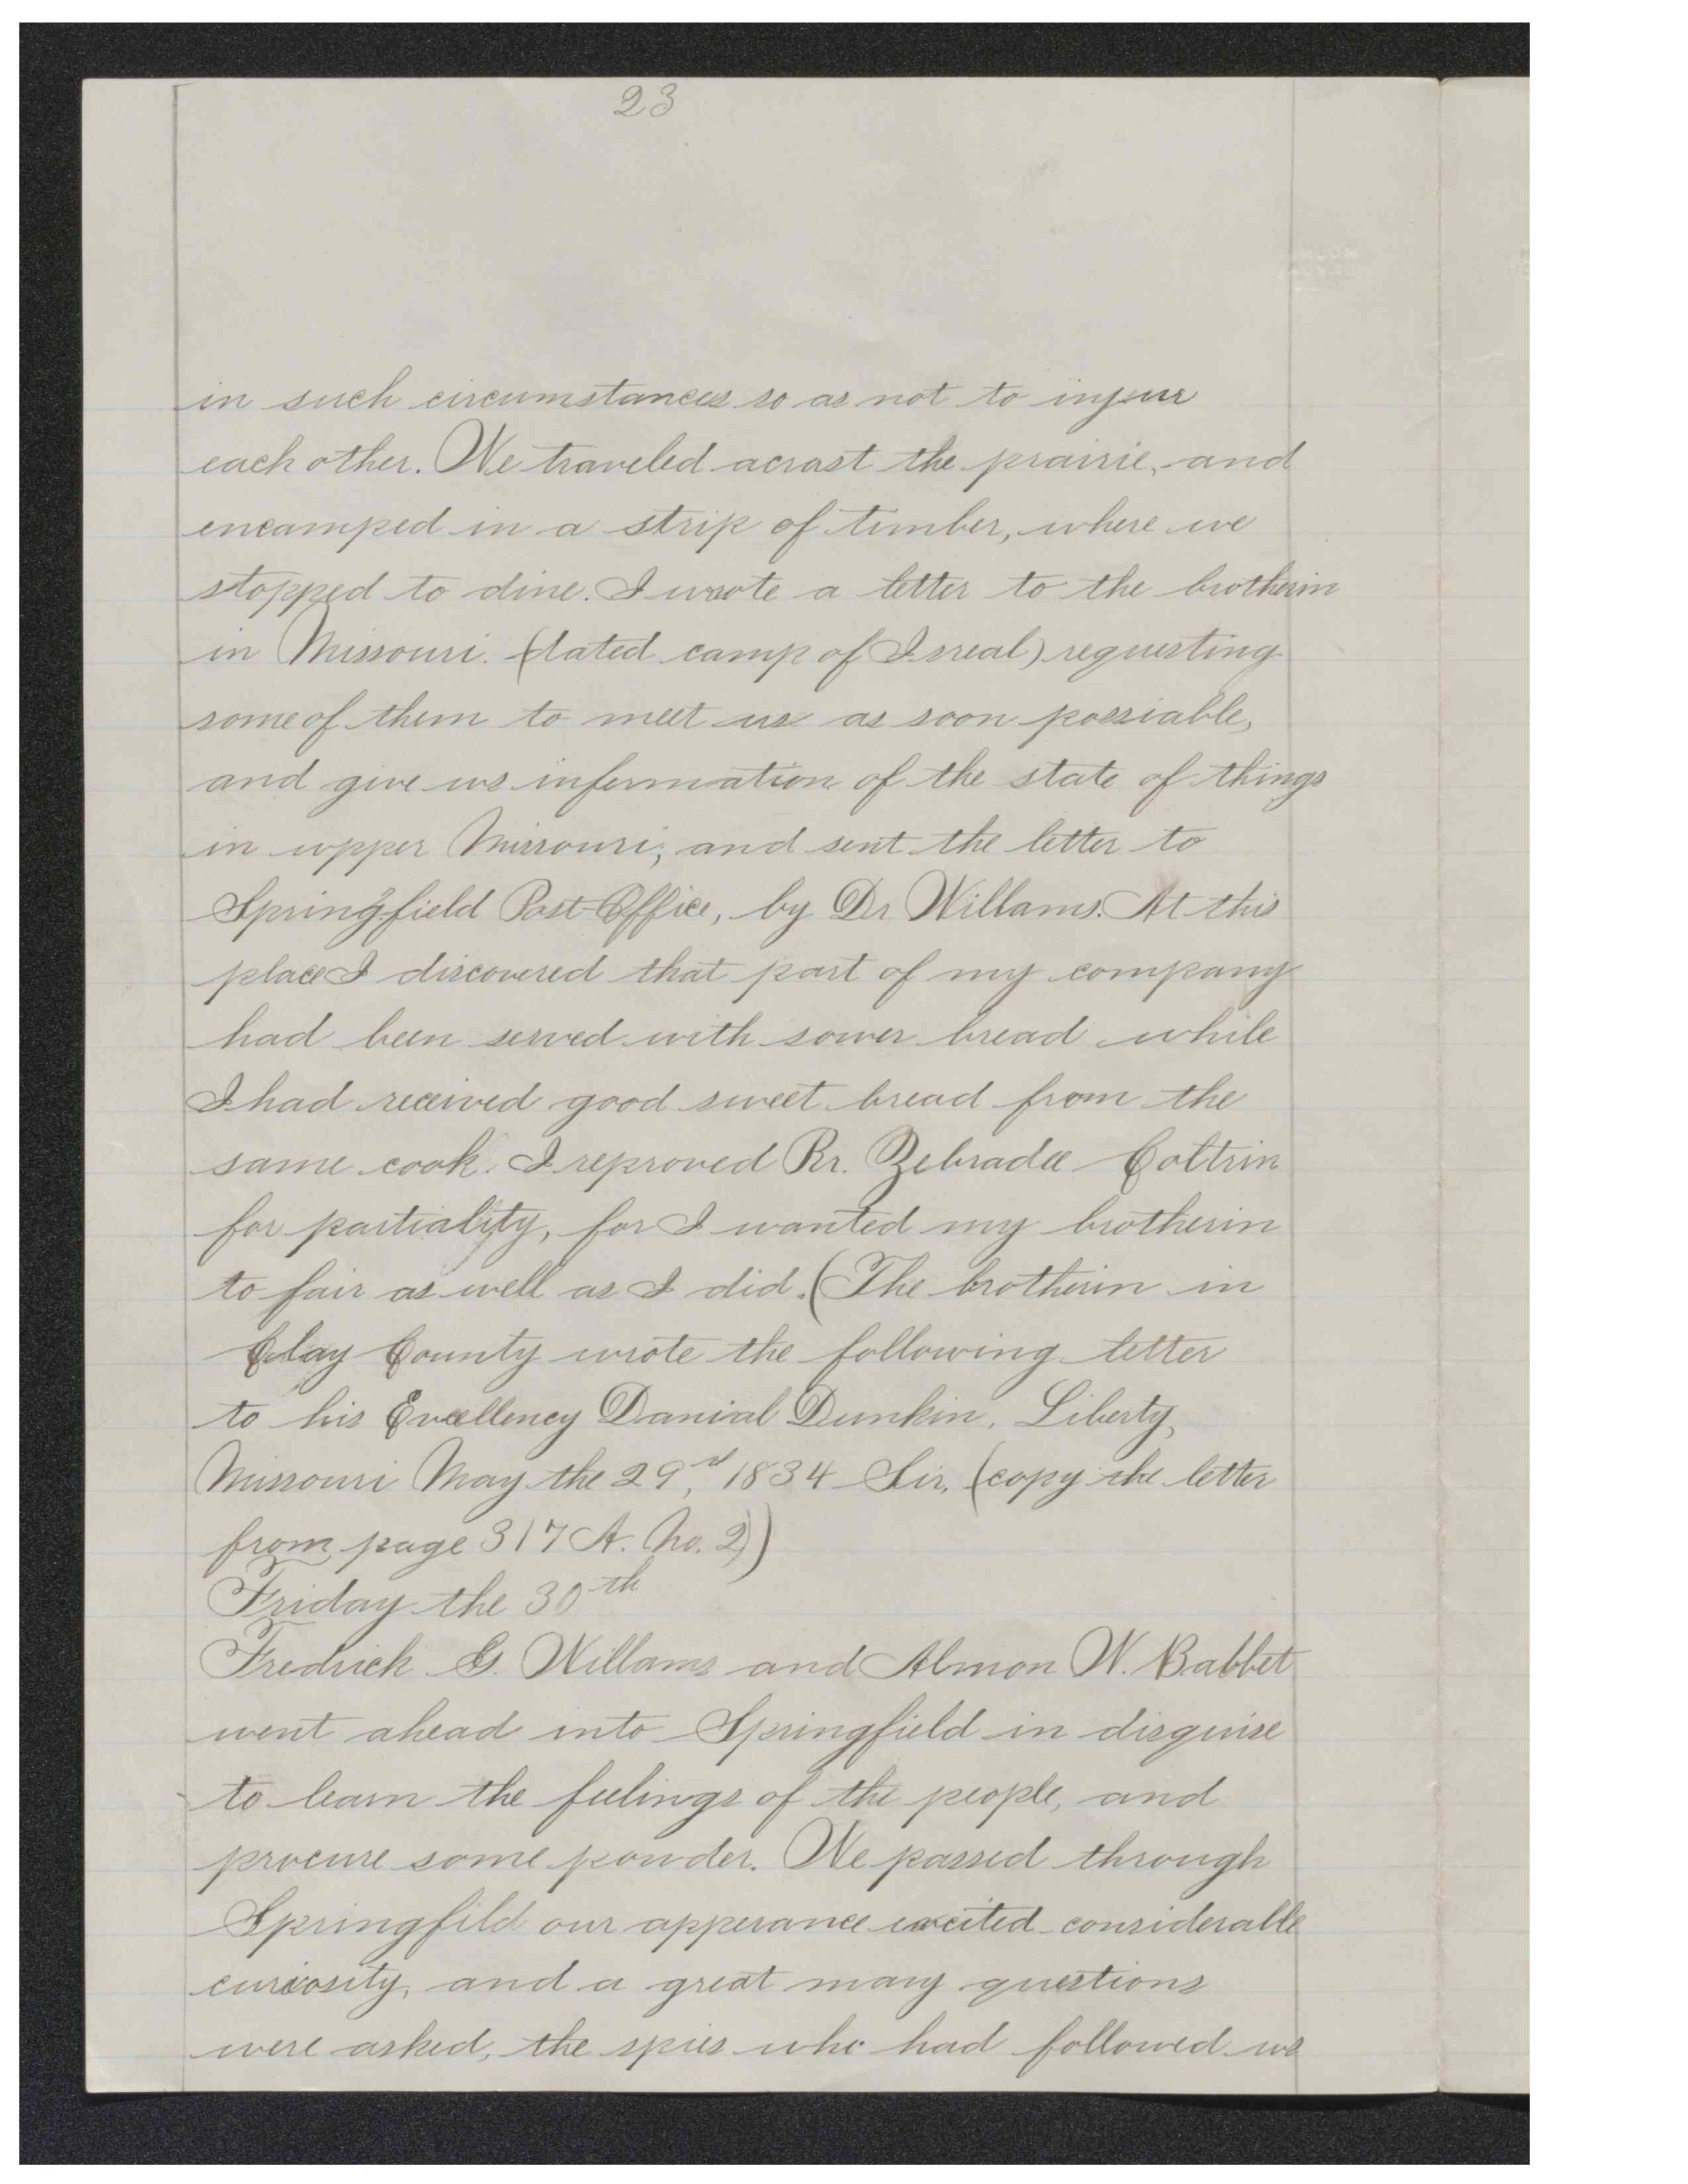 23
in such circumstances so as not to injeur
each other. We traveled acrast the prairie, and
encamped in a strip of timber, where we
stopped to dine. I wrote a letter to the brotherin
in Missouri. (dated camp of Isreal) requesting
some of them to meet us as soon possiable,
and give us information of the state of things
in upper Missouri; and sent the letter to
Springfield Post Office, by Dr Willams. At this
place I discovered that part of my company
had been served with sower bread while
I had received good sweet bread from the
same cook. I reproved Br. Zebradee Coltrin
for partiality, for I wanted my brotherin
to fair as well as I did. (The brotherin in
Clay County wrote the following letter
to his Excellency Danial Dunkin, Liberty,
Missouri May the 29,rd 1834 Sir, (copy the letter
from page 317 A. No. 2))
Friday the 30th
Fredrick G. Willams and Almon W. Babbet
went ahead into Springfield in disguise
to learn the feelings of the people, and
procure some powder. We passed through
Springfild our apperance excited considerable
curiosity, and a great many questions
were asked, the spies who had followed us